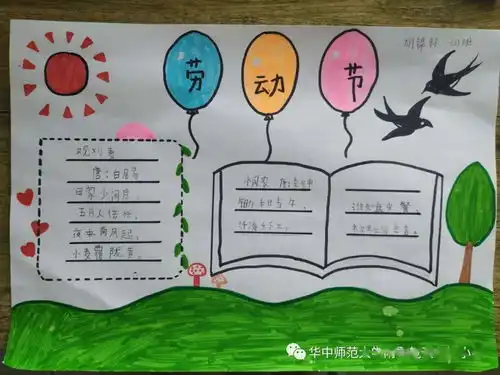 劳动节
观刈麦
唐:白居易
田家少闲月,
五月人倍忙。
夜来南风起,
小麦覆陇黄。
悯农 唐:李绅
锄禾日当午,
汗滴禾下土。
谁知盘中餐,
华中师范大学